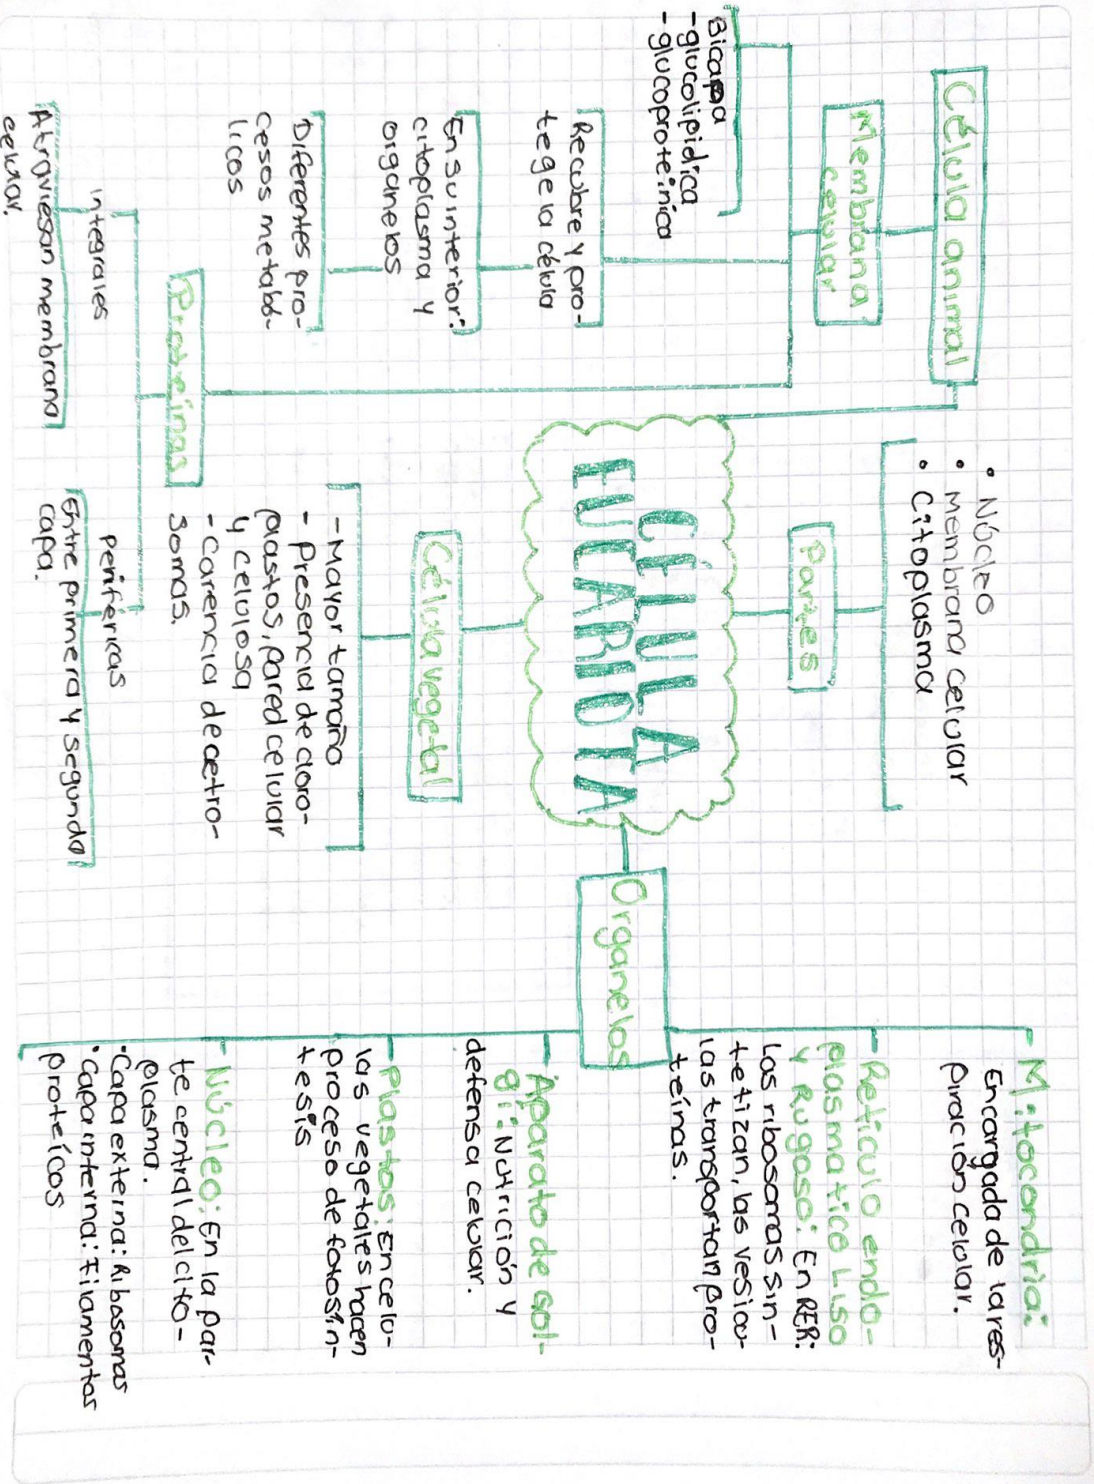 Célula animal
Membrana
celular
Bicapa
-glucolipidica
-glucoproteinica
Recubre y pro-
tege la célula
En su interior:
citoplasma y
organelos
Diferentes pro-
cesos metabó-
licos
Proteinas
integrales
Atraviesan membrana
celular.
periféricas
Entre primera y segunda
capa.
• Núcleo
• Membrana celular
• Citoplasma
Partes
CÉLULA
EUCARIOTA
Célula vegetal
- Mayor tamaño
- Presencia de cloro-
plastos, pared celular
y celulosa
- carencia de cetro-
somas.
Organelos
- Mitocondria:
Encargada de la res-
piración celular.
- Reticulo endo-
plasmatico Liso
y Rugoso: En RER:
Los ribosomas sin-
tetizan, las vesicu-
las transportan pro-
teínas.
- Aparato de Gol-
gi: Nutrición y
defensa celular.
- Plastos: En celu-
las vegetales hacen
proceso de fotosín-
tesis
- Núcleo: En la par-
te central del cito-
plasma.
• Capa externa: Ribosomas
• Capa interna: Filamentos
proteícos